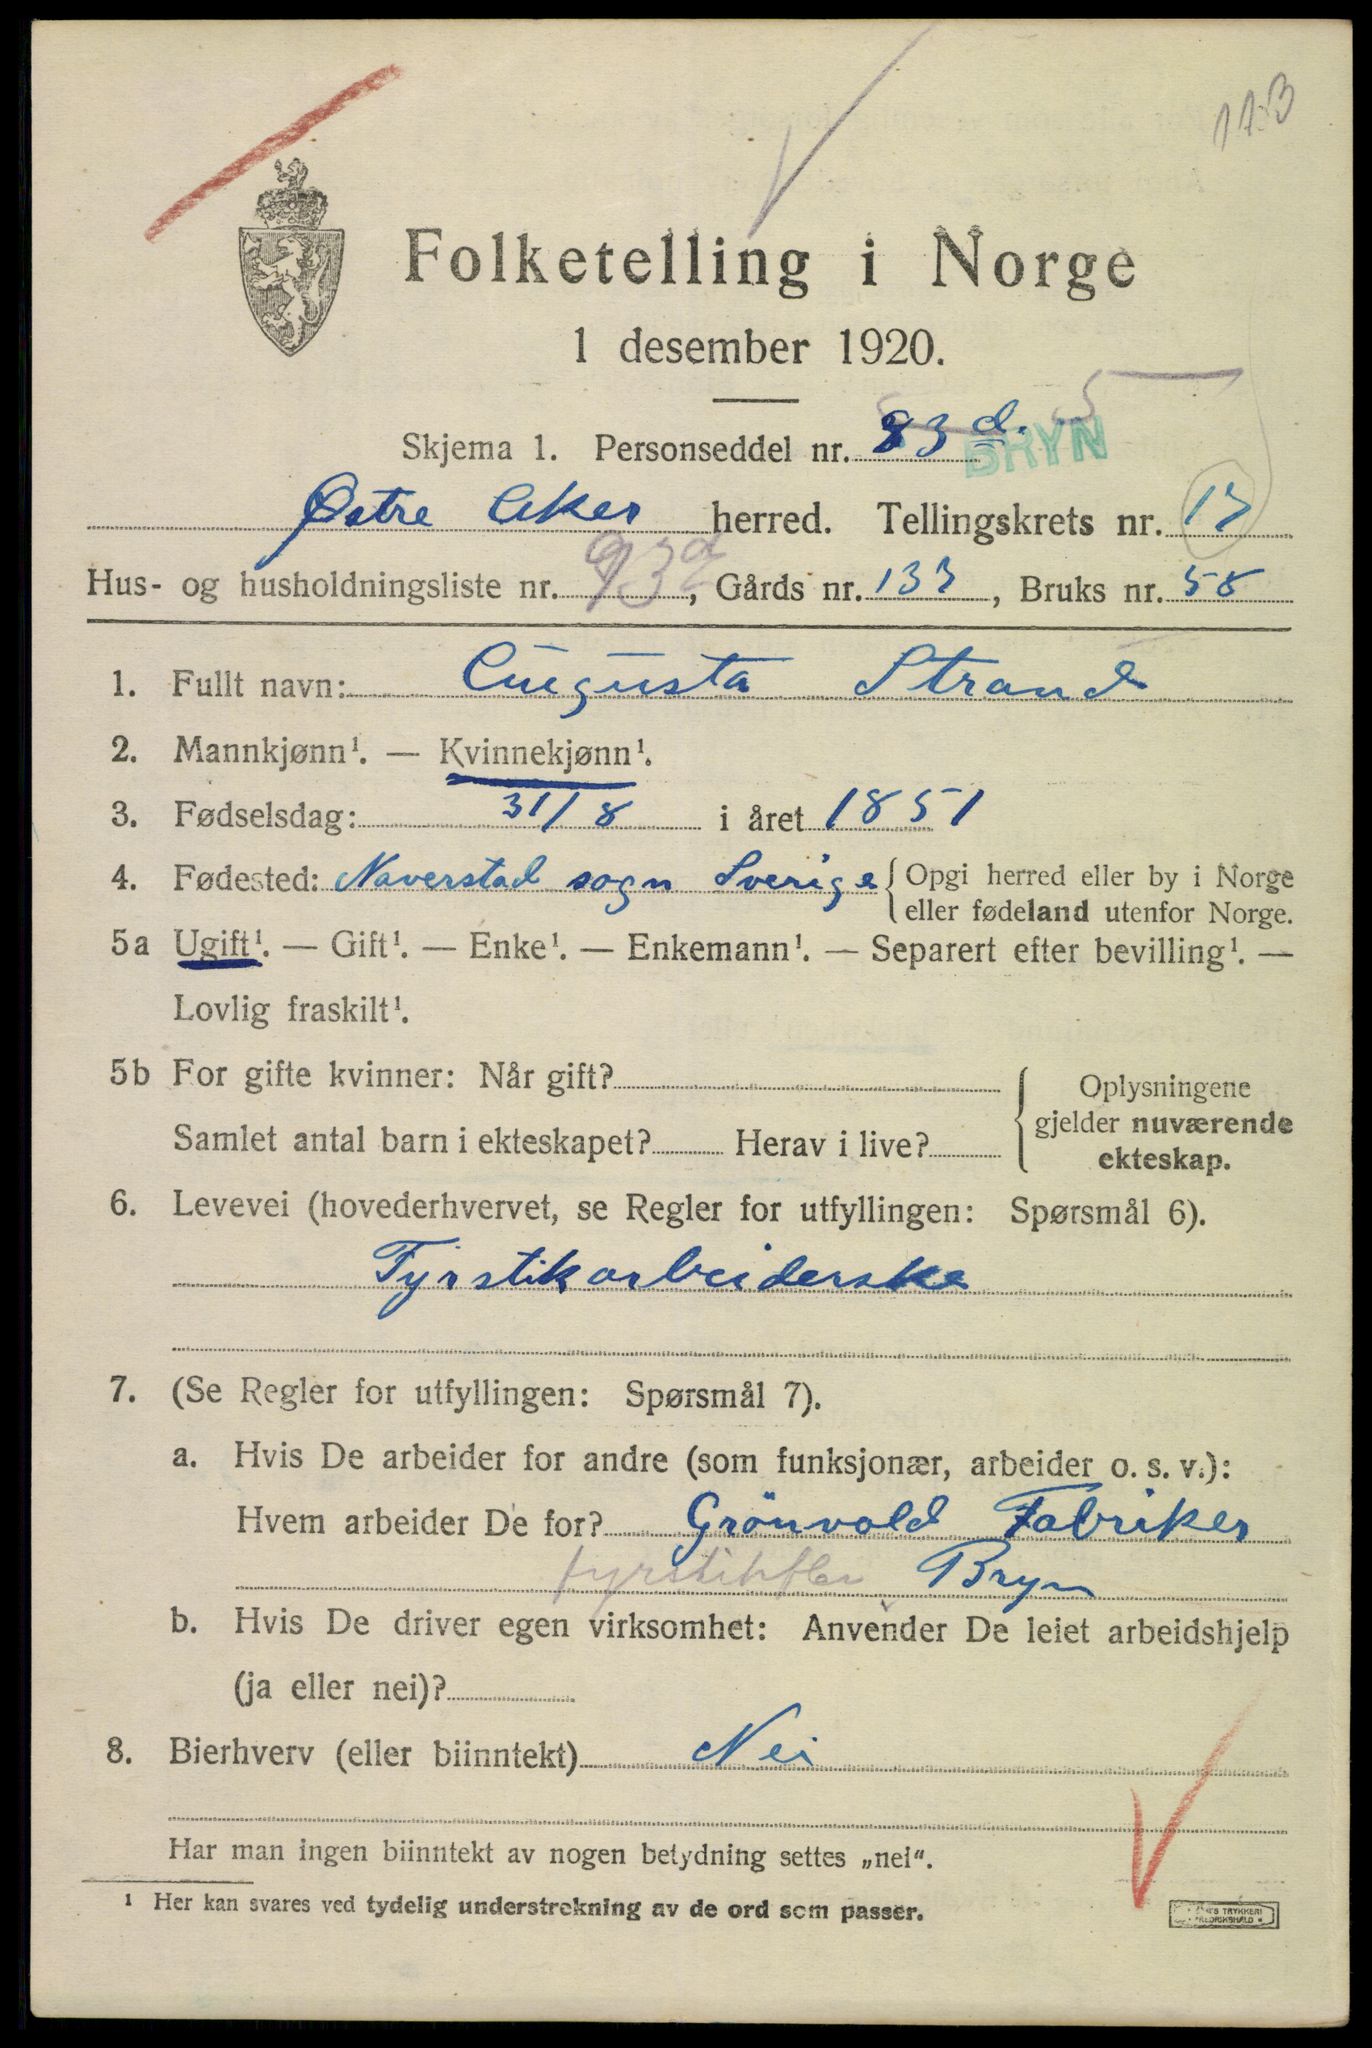 Folketelling i Norge
1 desember 1920.
5
Skjema 1. Personseddel nr. 83 d.
BRYN
Østre Aker herred. Tellingskrets nr. 17
Hus- og husholdningsliste nr. 93d, Gårds nr. 133, Bruks nr. 58
1. Fullt navn: Augusta Strand
2. Mannkjønn¹. — Kvinnekjønn¹.
3. Fødselsdag: 31/8 i året 1851
4. Fødested: Naverstad sogn Sverige { Opgi herred eller by i Norge
eller fødeland utenfor Norge.
5a Ugift¹. — Gift¹. — Enke¹. — Enkemann¹. — Separert efter bevilling¹. —
Lovlig fraskilt¹.
5b For gifte kvinner: Når gift?
Samlet antal barn i ekteskapet? Herav i live?
Oplysningene
gjelder nuværende
ekteskap.
6. Levevei (hovederhvervet, se Regler for utfyllingen: Spørsmål 6).
Fyrstikarbeiderske
7. (Se Regler for utfyllingen: Spørsmål 7).
a. Hvis De arbeider for andre (som funksjonær, arbeider o. s. v.):
Hvem arbeider De for? Grönvold Fabriker
Bryn
b. Hvis De driver egen virksomhet: Anvender De leiet arbeidshjelp
(ja eller nei)?
8. Bierhverv (eller biinntekt) Nei
Har man ingen biinntekt av nogen betydning settes „nei".
¹ Her kan svares ved tydelig understrekning av de ord som passer.
TRYKKERI